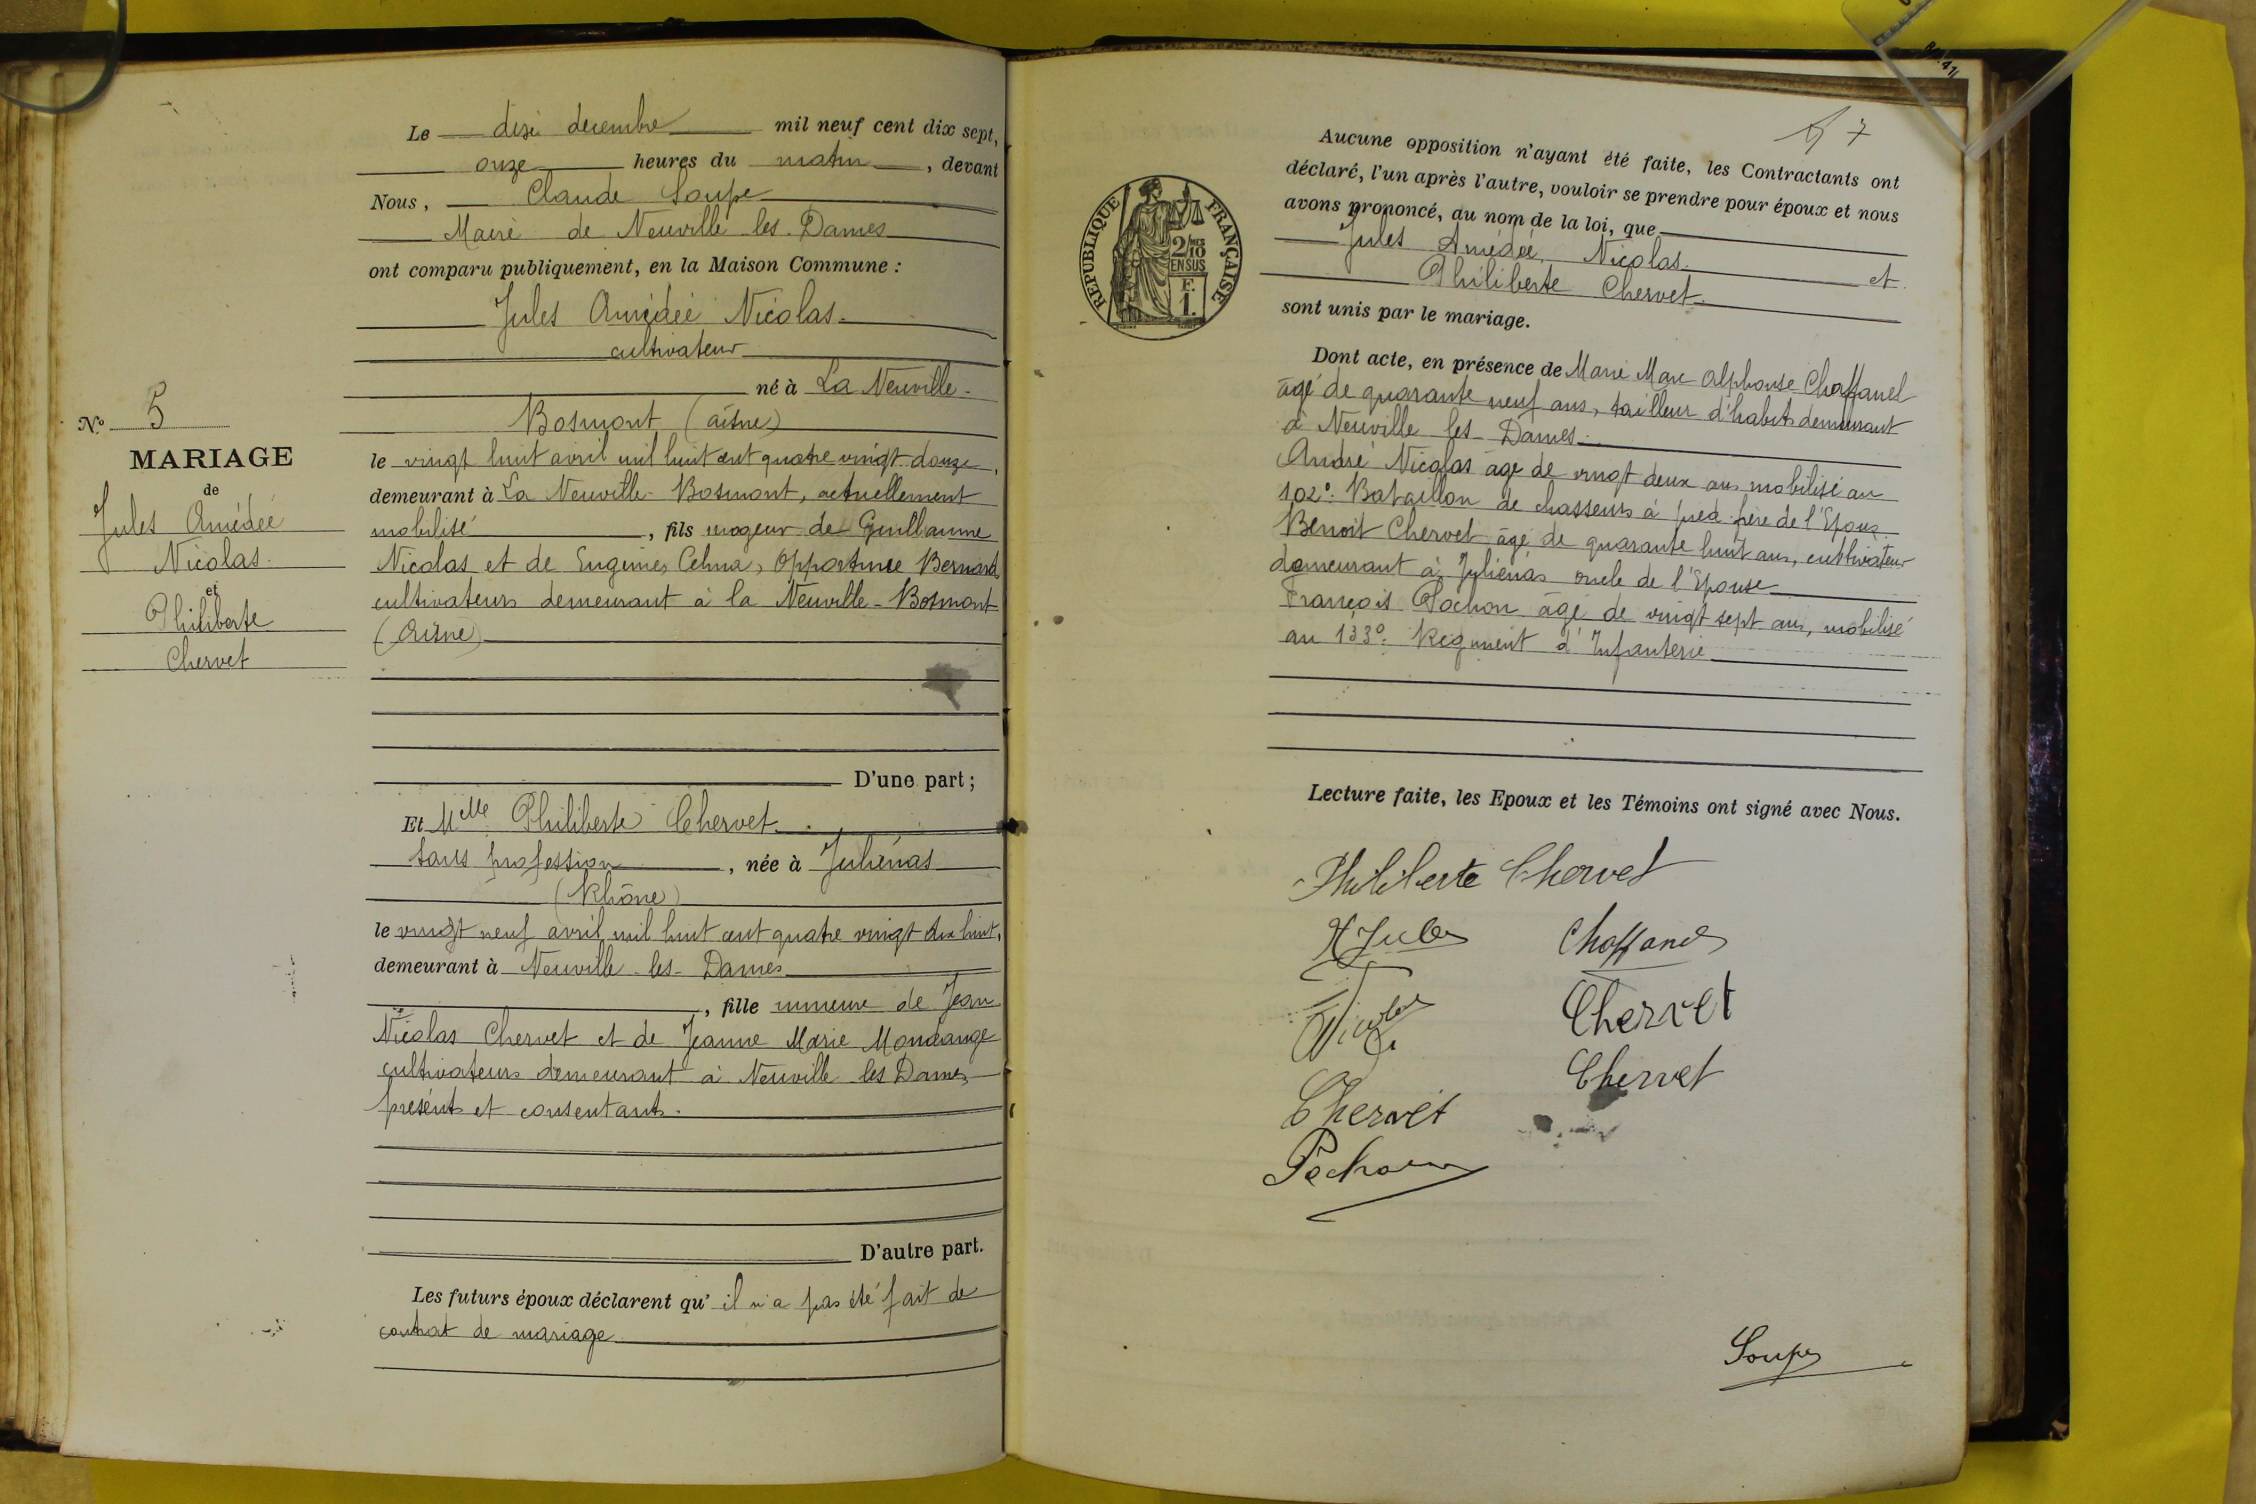 Le dix decembre mil neuf cent dix sept,
onze heures du matin, devant
Nous, Claude Soupe
Maire de Neuville les Dames
ont comparu publiquement, en la Maison Commune :
Jules Amédée Nicolas
cultivateur
né à La Neuville-
Bosmont (aisne)
le vingt huit avril mil huit cent quatre vingt douze,
demeurant à La Neuville-Bosmont, actuellement
mobilisé, fils mageur de Guillaume
Nicolas et de Eugénie, Celina, Opportune Bernard
cultivateurs demeurant à la Neuville-Bosmont
(Aisne)
D'une part;
Et Melle Philiberte Chervet
sans profession, née à Juliénas
(Rhône)
le vingt neuf avril mil huit cent quatre vingt dix huit,
demeurant à Neuville-les-Dames
, fille mineure de Jean
Nicolas Chervet et de Jeanne Marie Mondange
cultivateurs demeurant à Neuville les Dames
présents et consentants.
D'autre part.
Les futurs époux déclarent qu'il n'a pas été fait de
contrat de mariage
No 5
MARIAGE
de
Jules Amédée
Nicolas
et
Philiberte
Chervet
7
REPUBLIQUE FRANÇAISE
2/10 MES
EN SUS
F.
1.
Aucune opposition n'ayant été faite, les Contractants ont
déclaré, l'un après l'autre, vouloir se prendre pour époux et nous
avons prononcé, au nom de la loi, que
Jules Amédée Nicolas et
Philiberte Chervet
sont unis par le mariage.
Dont acte, en présence de Marie Marc Alphonse Choffanel
âgé de quarante neuf ans, tailleur d'habits demeurant
à Neuville les-Dames
André Nicolas âgé de vingt deux ans mobilisé au
102e Bataillon de chasseurs à pied frère de l'Epoux
Benoit Chervet âgé de quarante huit ans, cultivateur
demeurant à Juliénas oncle de l'Epouse
François Pochon âgé de vingt sept ans, mobilisé
au 133e Regiment d'Infanterie
Lecture faite, les Epoux et les Témoins ont signé avec Nous.
Philiberte Chervet
N Jules Choffanel
Nicolas Chervet
Chervet
Chervet
Pochon
Soupe